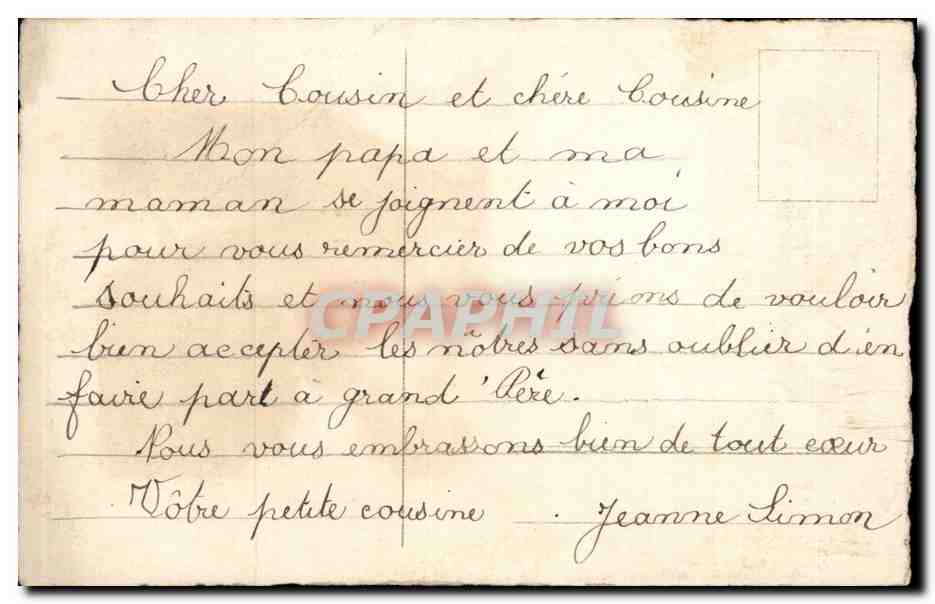 Cher Cousin et chère Cousine
Mon papa et ma
maman se joignent à moi
pour vous remercier de vos bons
souhaits et nous vous prions de vouloir
CPAPHIL
bien accepter les nôtres sans oublier d'en
faire part à grand'Père.
Nous vous embrassons bien de tout cœur
Vôtre petite cousine . Jeanne Simon